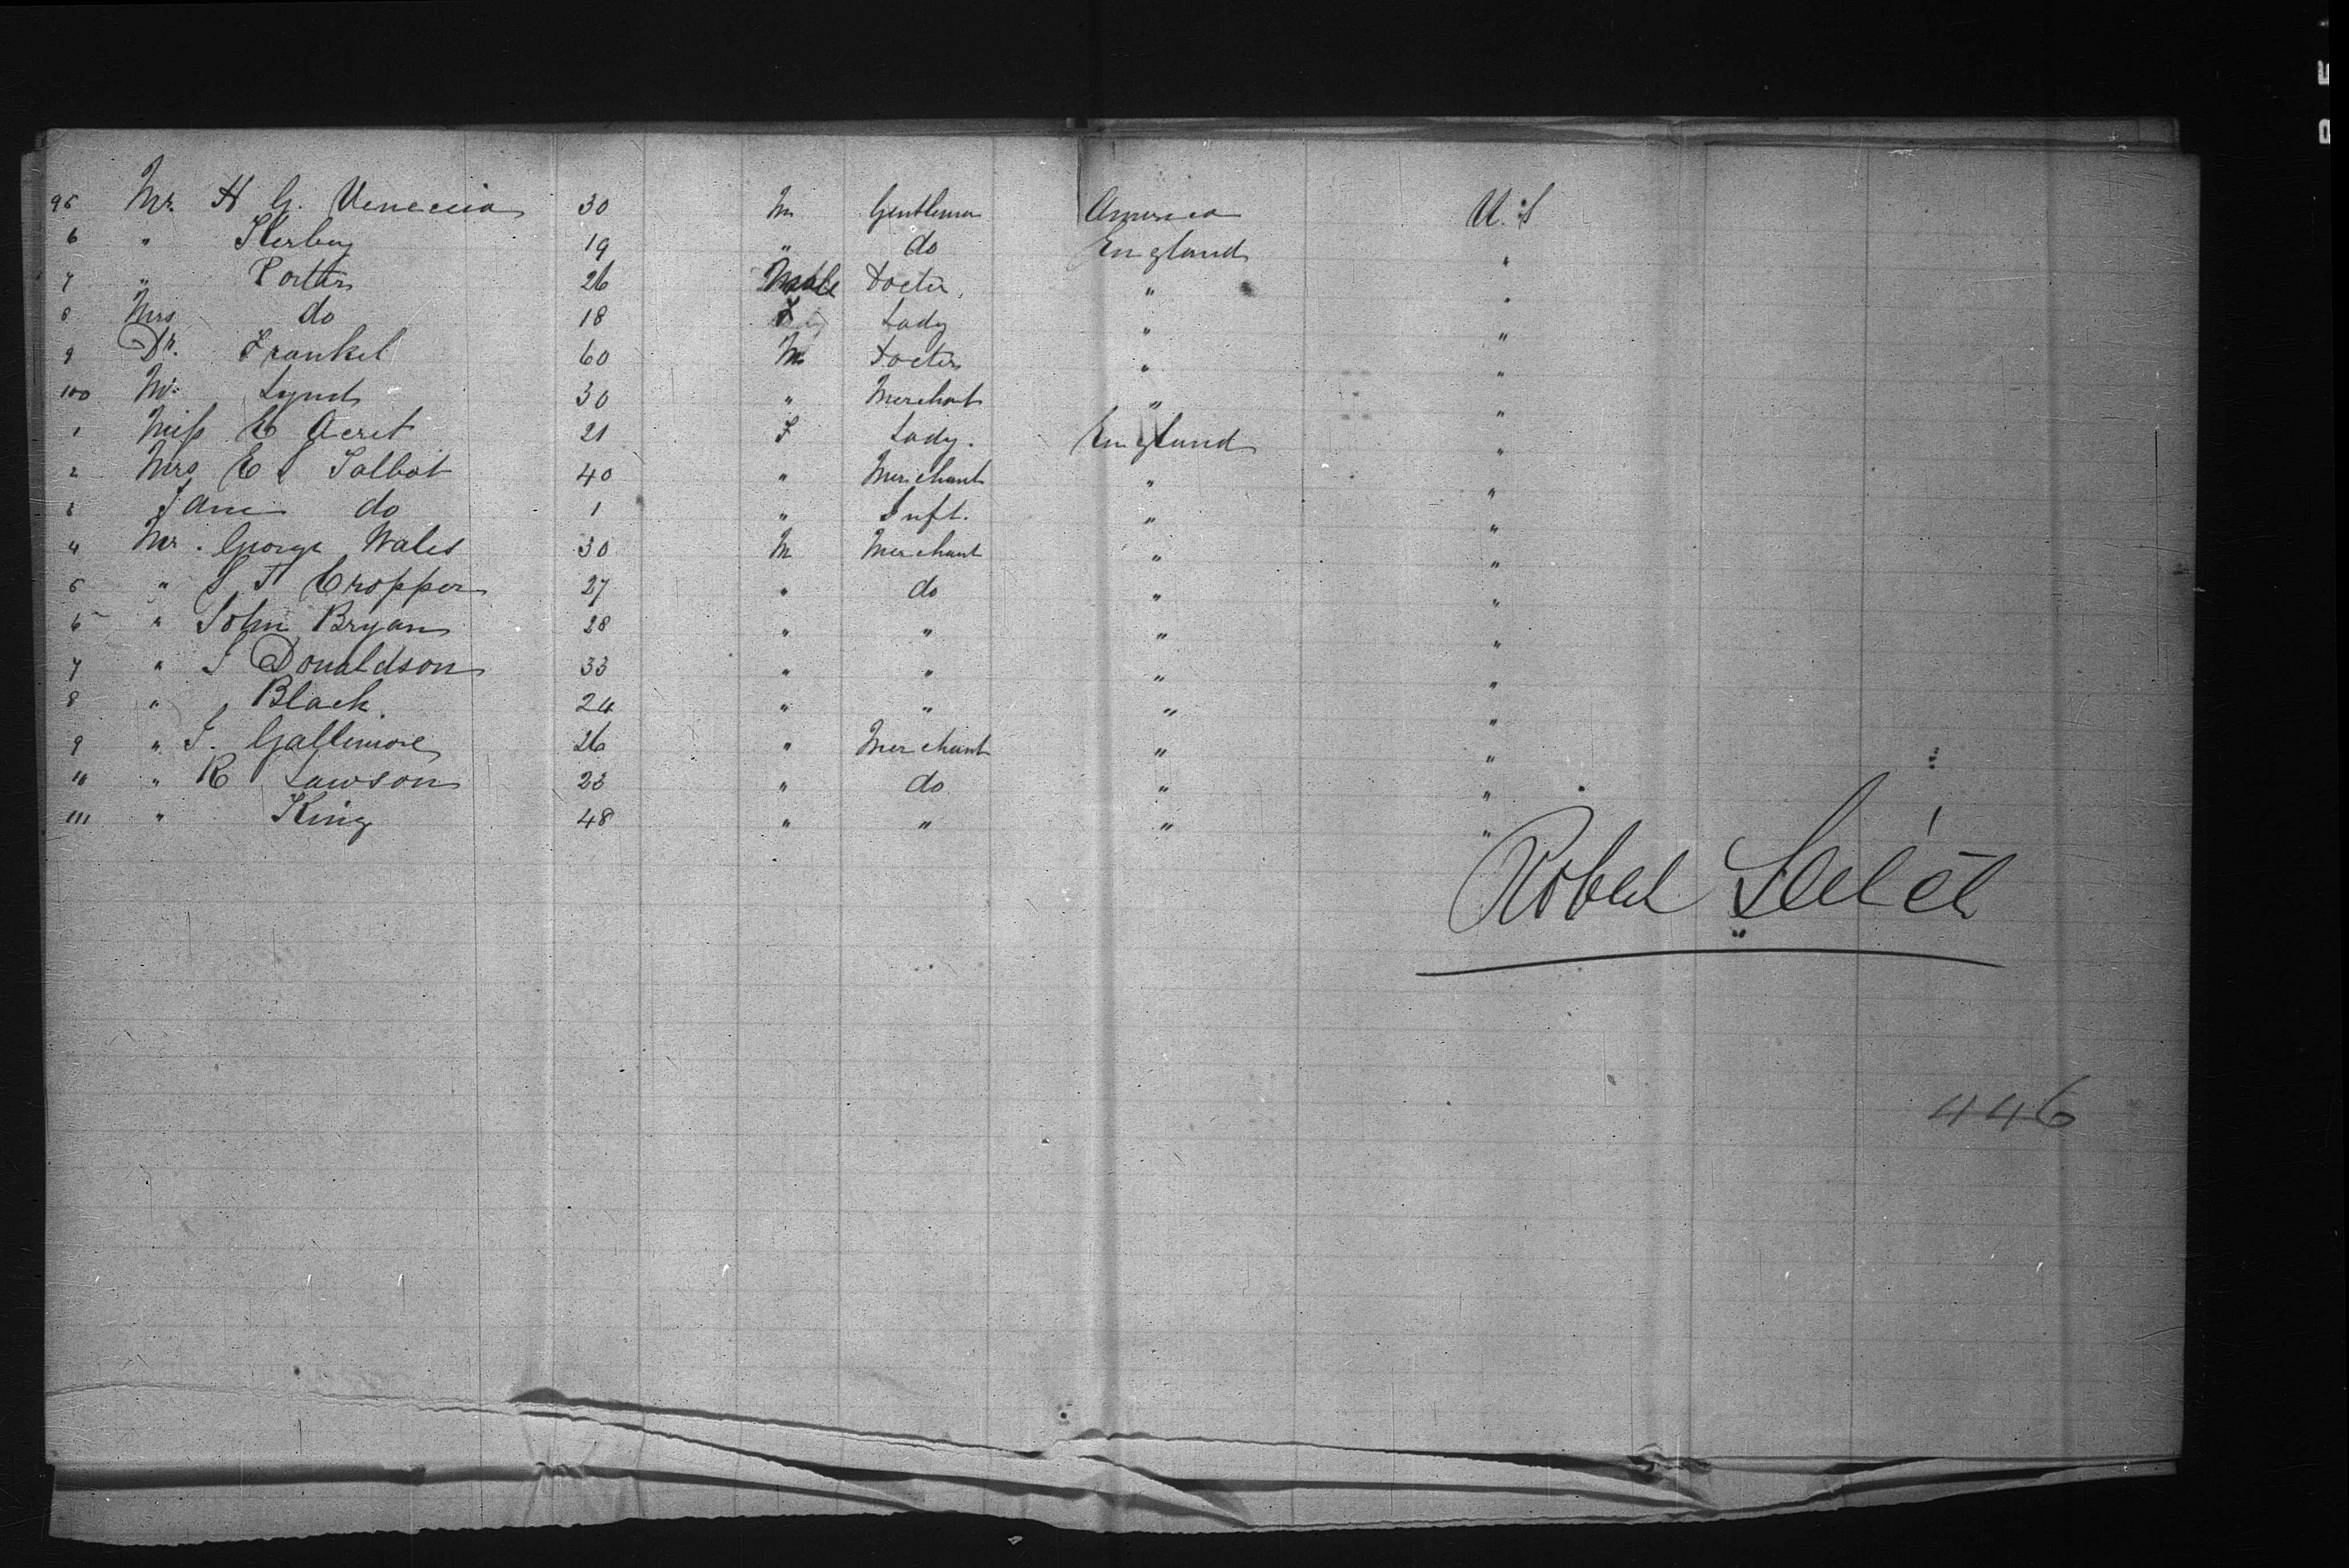 95 Mr. H G. Venecia 30 M Gentleman America U. S
6 " Kerbey 19 " do England "
7 " Porter 26 Male Doctor " "
8 Mrs do 18 F Lady " "
9 Dr. Frankel 60 M Doctor " "
100 Mr Lynd 30 " Merchant " "
1 Miss E Acret 21 F Lady. England "
2 Mrs E S Talbot 40 " Merchant " "
3 Jane do 1 " Inft. " "
4 Mr. George Wales 30 M Merchant " "
5 " S T Cropper 27 " do " "
6 " John Bryan 28 " " " "
7 " J Donaldson 33 " " " "
8 " Black. 24 " " " "
9 " J. Gallimore 26 " Merchant " "
10 " R Lawson 23 " do " "
111 " King 48 " " " "
446